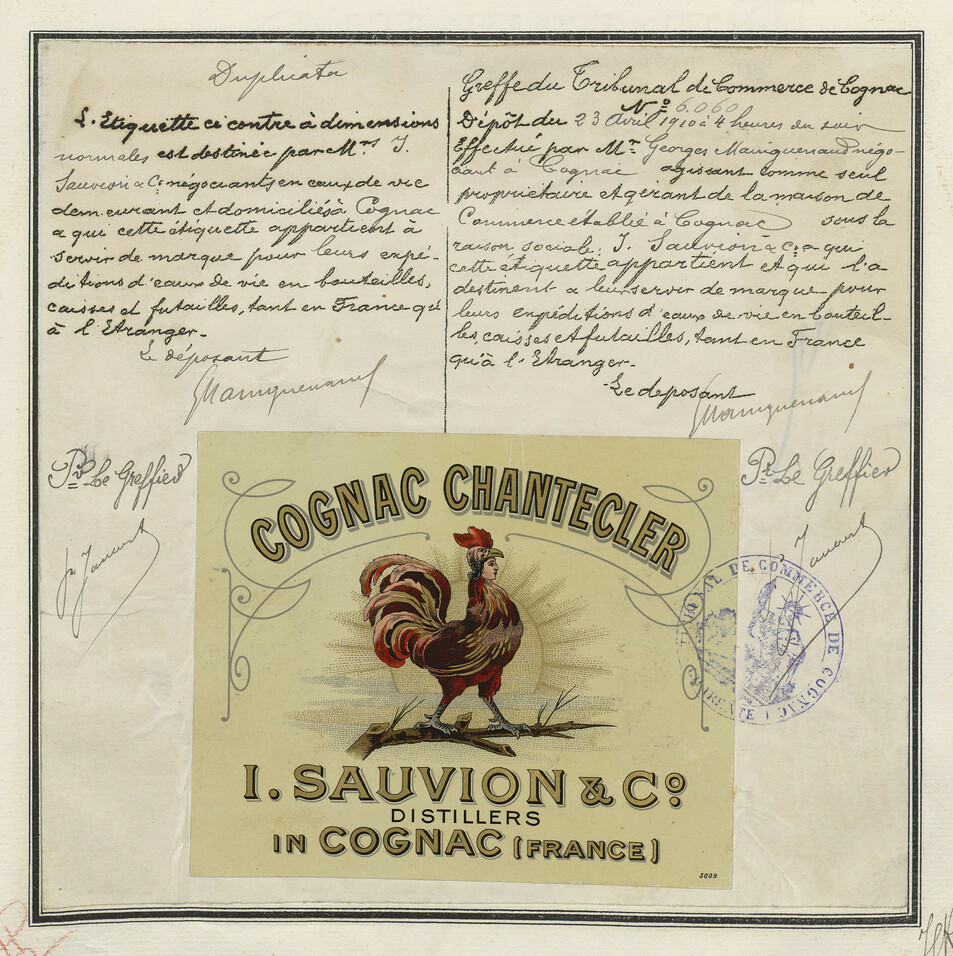 Duplicata
L'Etiquette ci contre à dimensions
normales est destinée par Mrs J.
Sauvion & Co négociants en eaux de vie
demeurant et domiciliés à Cognac
a qui cette étiquette appartient à
servir de marque pour leurs expé-
ditions d'eaux de vie en bouteilles,
caisses et futailles, tant en France qu'
à l'Etranger.-
Le déposant
Pr Le Greffier
Greffe du Tribunal de Commerce de Cognac
No 6.060
Dépôt du 23 Avril 1910 à 4 heures du soir
Effectué par Mr Georges Mauiquenaud négo-
ciant à Cognac agissant comme seul
propriétaire et gérant de la maison de
Commerce établie à Cognac sous la
raison sociale: J. Sauvion & Co, a qui
cette étiquette appartient et qui l'a
destinent a leur servir de marque pour
leurs expéditions d'eaux de vie en bouteil-
les, caisses et futailles, tant en France
qu'à l'Etranger.-
Le deposant
Pr Le Greffier
COGNAC CHANTECLER
I. SAUVION & Co
DISTILLERS
IN COGNAC (FRANCE)
3009
TRIBUNAL DE COMMERCE DE COGNAC (CHARENTE)